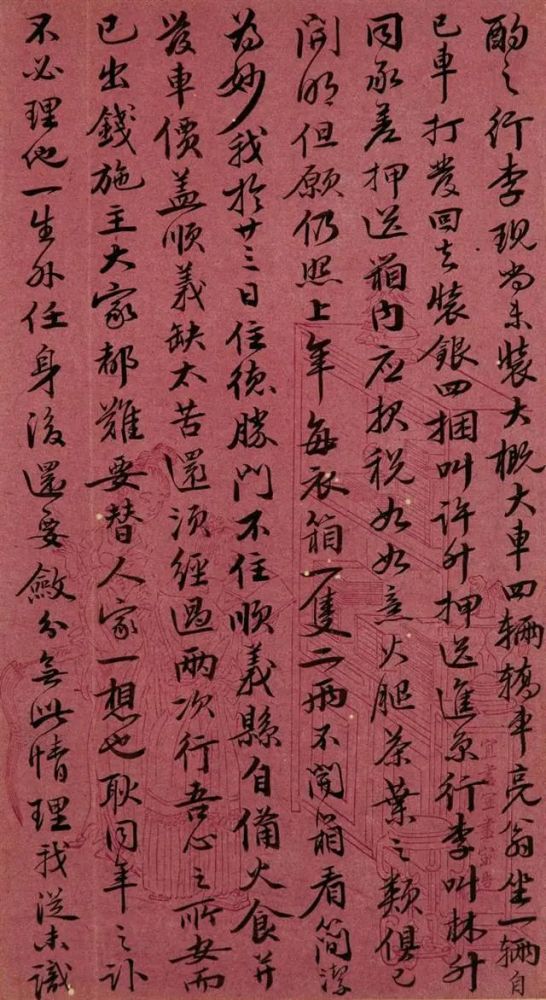 酌之行李現尚未裝大概大車四輛轎車亮翁坐一輛自
已車打發回去裝銀四捆叫許升押送進京行李叫林升
同承差押送箱內应报税如如意火腿茶葉之類俱已
開明但願仍照上年每衣箱一隻二兩不開箱看簡潔
為妙我於廿三日住德勝門不住順義縣自備火食并
發車價蓋順義缺太苦還須經過兩次行吾心之所安而
已出錢施主大家都難要替人家一想也耿同年之訃
不必理他一生外任身後還要斂分無此情理我從未識